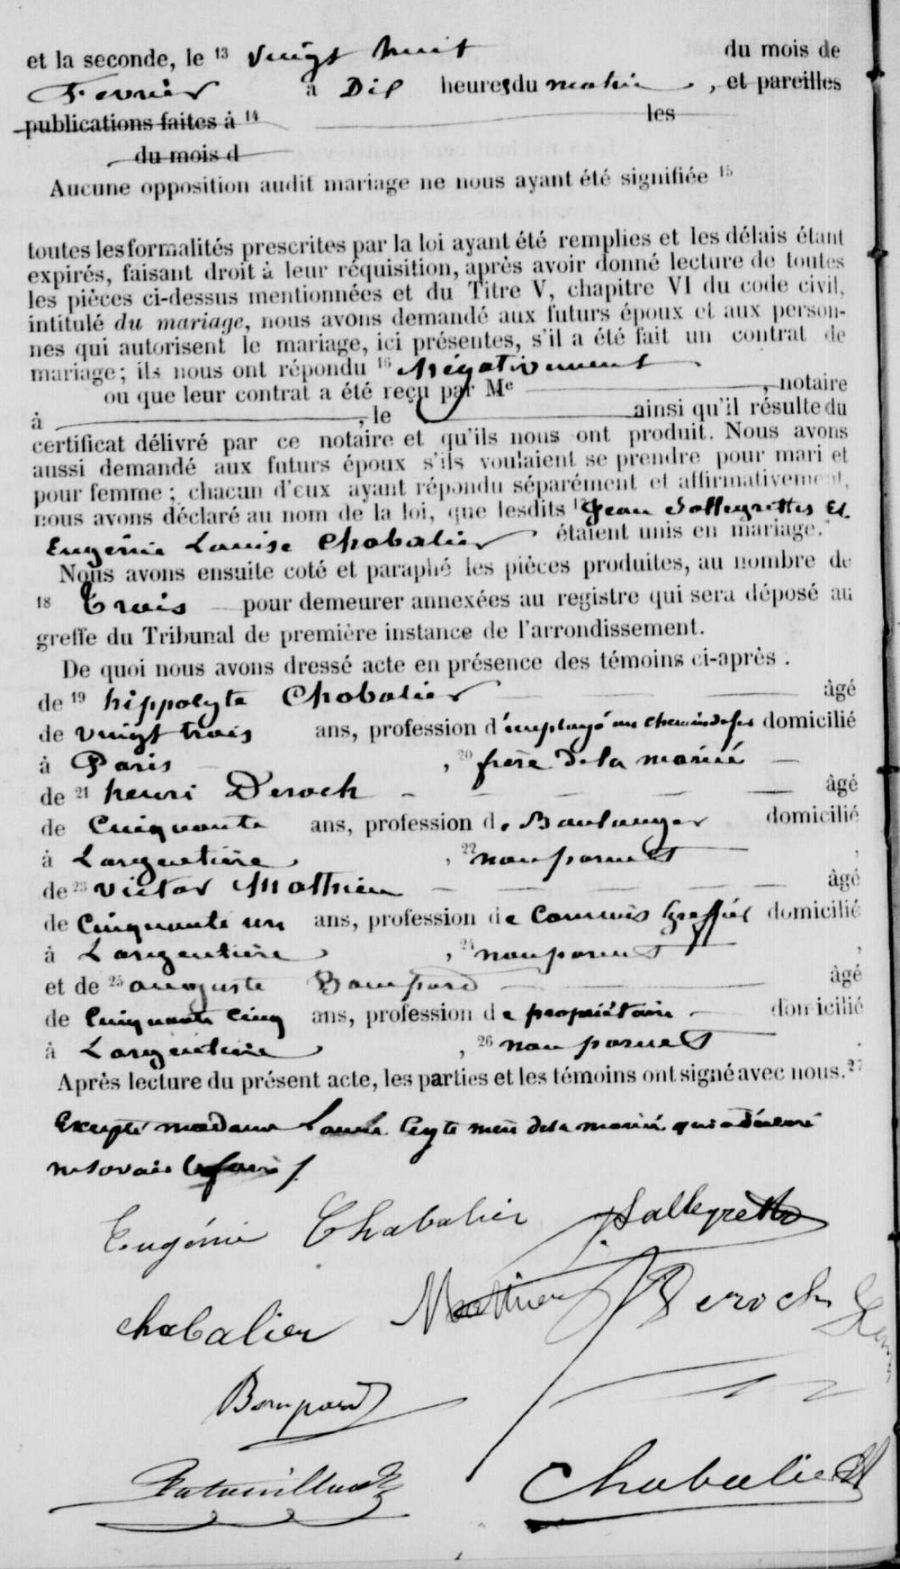 et la seconde, le 13 vingt huit du mois de
Fevrier à Dix heures du matin, et pareilles
publications faites à 14 les
du mois d
Aucune opposition audit mariage ne nous ayant été signifiée 15
toutes les formalités prescrites par la loi ayant été remplies et les délais étant
expirés, faisant droit à leur réquisition, après avoir donné lecture de toutes
les pièces ci-dessus mentionnées et du Titre V, chapitre VI du code civil,
intitulé du mariage, nous avons demandé aux futurs époux et aux person-
nes qui autorisent le mariage, ici présentes, s'il a été fait un contrat de
mariage; ils nous ont répondu 16 Négativement
ou que leur contrat a été reçu par Me , notaire
à , le ainsi qu'il résulte du
certificat délivré par ce notaire et qu'ils nous ont produit. Nous avons
aussi demandé aux futurs époux s'ils voulaient se prendre pour mari et
pour femme; chacun d'eux ayant répondu séparément et affirmativement,
nous avons déclaré au nom de la loi, que lesdits 17 Jean Sallegrettes Et
Eugénie Louise Chabalier étaient unis en mariage.
Nous avons ensuite coté et paraphé les pièces produites, au nombre de
18 Trois pour demeurer annexées au registre qui sera déposé au
greffe du Tribunal de première instance de l'arrondissement.
De quoi nous avons dressé acte en présence des témoins ci-après.
de 19 hippolyte Chabalier âgé
de vingt trois ans, profession d'employé au chemin de fer domicilié
à Paris , 20 frère de la mariée
de 21 henri Deroch âgé
de Cinquante ans, profession de Boulanger domicilié
à Largentière , 22 non parent ,
de 23 victor Mathieu âgé
de Cinquante un ans, profession de Commis Greffier domicilié
à Largentière , 24 non parent ,
et de 25 auguste Bompard âgé
de Cinquante Cinq ans, profession de propriétaire domicilié
à Largentière , 26 non parent .
Après lecture du présent acte, les parties et les témoins ont signé avec nous. 27
Excepté madame mère de la mariée qui a déclaré
ne savoir le faire /
Eugénie Chabalier JSallegrettes
Chabalier Mathieu Deroch
Bompard
Chabalier